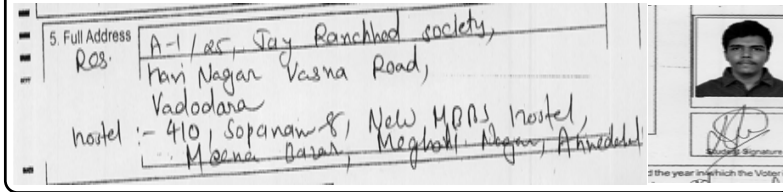 5. Full Address
Res.
A-1/25, Jay Ranchhod society,
Hari Nagar Vasna Road,
Vadodara
hostel :- 410, Sopanam 8, New MBBS hostel,
Meena Bazar, Meghani Nagar, Ahmedabad
Student Signature
d the year in which the Vote